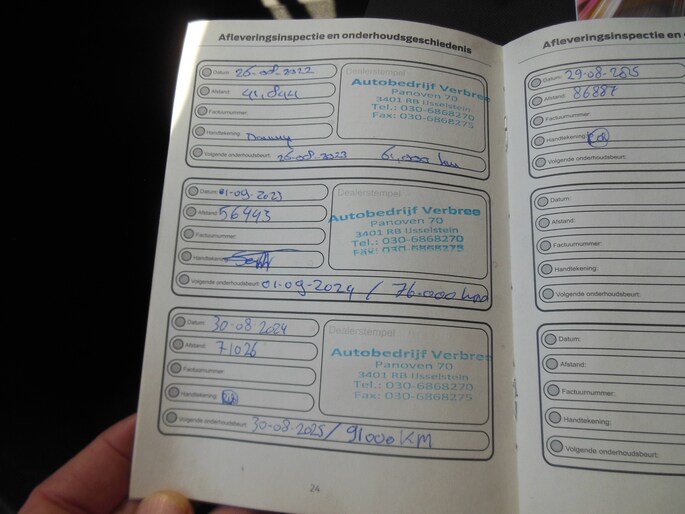 Afleveringsinspectie en onderhoudsgeschiedenis
Datum: 26-08-2022
Afstand: 41,844
Factuurnummer:
Handtekening: Danny
Volgende onderhoudsbeurt: 26-08-2023 61,000 km
Dealerstempel
Autobedrijf Verbree
Panoven 70
3401 RB IJsselstein
Tel.: 030-6868270
Fax: 030-6868275
Datum: 01-09-2023
Afstand: 56493
Factuurnummer:
Handtekening:
Volgende onderhoudsbeurt: 01-09-2024 / 76.000 km
Dealerstempel
Autobedrijf Verbree
Panoven 70
3401 RB IJsselstein
Tel.: 030-6868270
Fax: 030-6868275
Datum: 30-08-2024
Afstand: 71026
Factuurnummer:
Handtekening:
Volgende onderhoudsbeurt: 30-08-2025 / 91000 KM
Dealerstempel
Autobedrijf Verbree
Panoven 70
3401 RB IJsselstein
Tel.: 030-6868270
Fax: 030-6868275
24
Afleveringsinspectie en
Datum: 29-08-2025
Afstand: 86887
Factuurnummer:
Handtekening:
Volgende onderhoudsbeurt:
Datum:
Afstand:
Factuurnummer:
Handtekening:
Volgende onderhoudsbeurt:
Datum:
Afstand:
Factuurnummer:
Handtekening:
Volgende onderhoudsbeurt: